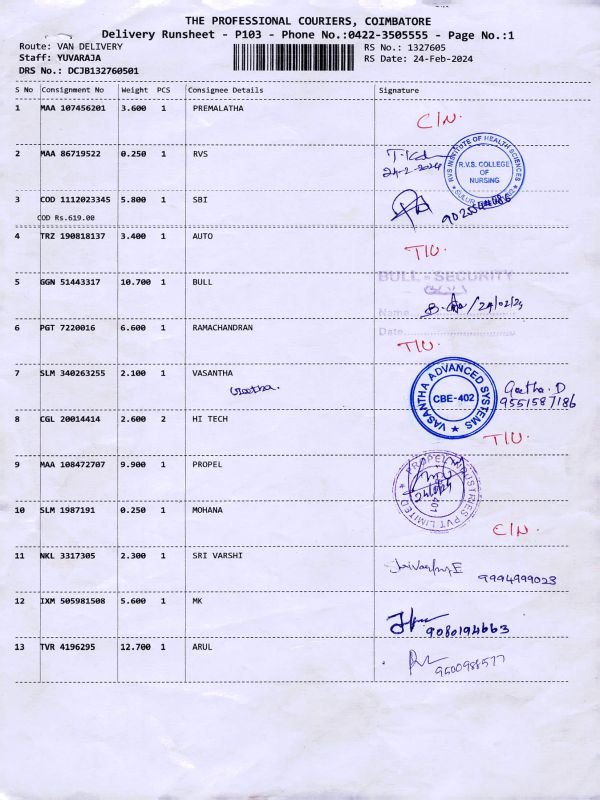 THE PROFESSIONAL COURIERS, COIMBATORE
Delivery Runsheet - P103 - Phone No.:0422-3505555 - Page No.:1
Route: VAN DELIVERY RS No.: 1327605
Staff: YUVARAJA RS Date: 24-Feb-2024
DRS No.: DCJB132760501
S No Consignment No Weight PCS Consignee Details Signature
1 MAA 107456201 3.600 1 PREMALATHA
C/N.
2 MAA 86719522 0.250 1 RVS
24-2-2024
RVS INSTITUTE OF HEALTH SCIENCES
R.V.S. COLLEGE
OF
NURSING
3 COD 1112023345 5.800 1 SBI
COD Rs.619.00
4 TRZ 190818137 3.400 1 AUTO
T/U.
5 GGN 51443317 10.700 1 BULL
BULL - SECURITY
Name
/24/02/24
Date
6 PGT 7220016 6.600 1 RAMACHANDRAN
T/U.
7 SLM 340263255 2.100 1 VASANTHA
Geetha.
VASANTHA ADVANCED SYSTEMS
CBE-402
Geetha. D
9551587186
8 CGL 20014414 2.600 2 HI TECH
T/U.
9 MAA 108472707 9.900 1 PROPEL
PROPEL INDUSTRIES PVT LIMITED
401
10 SLM 1987191 0.250 1 MOHANA
C/N.
11 NKL 3317305 2.300 1 SRI VARSHI
9994999023
12 IXM 505981508 5.600 1 MK
9080194663
13 TVR 4196295 12.700 1 ARUL